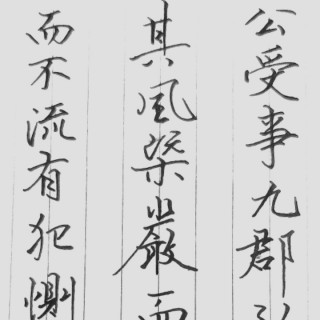 公受事九郡
其風槩嚴而
而不流有犯惻